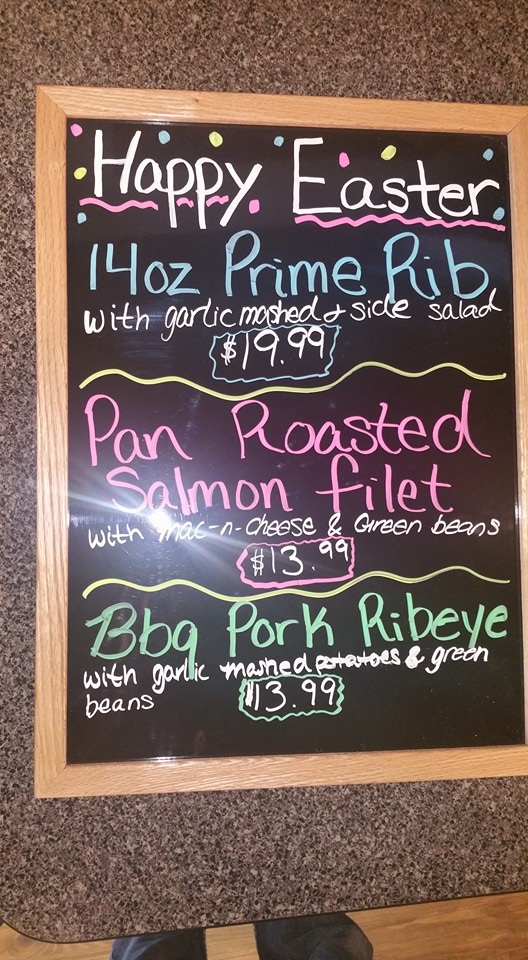 Happy Easter
14oz Prime Rib
with garlic mashed & side salad
$19.99
Pan Roasted
Salmon filet
with mac-n-cheese & Green beans
$13.99
Bbq Pork Ribeye
with garlic mashed potatoes & green
beans
$13.99